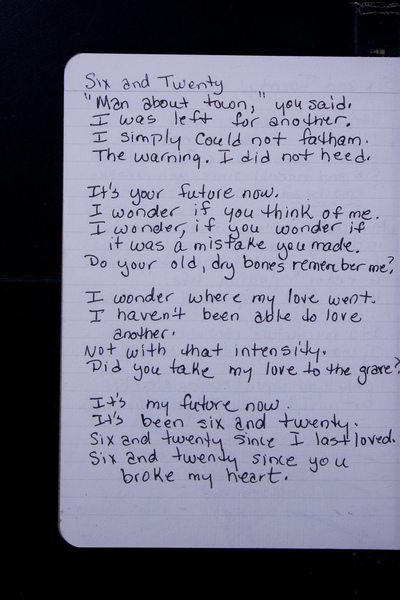 Six and Twenty
"Man about town," you said.
I was left for another.
I simply could not fatham.
The warning. I did not heed.
It's your future now.
I wonder if you think of me.
I wonder, if you wonder if
it was a mistake you made.
Do your old, dry bones remember me?
I wonder where my love went.
I haven't been able to love
another.
Not with that intensity.
Did you take my love to the grave?
It's my future now.
It's been six and twenty.
Six and twenty since I last loved.
Six and twenty since you
broke my heart.